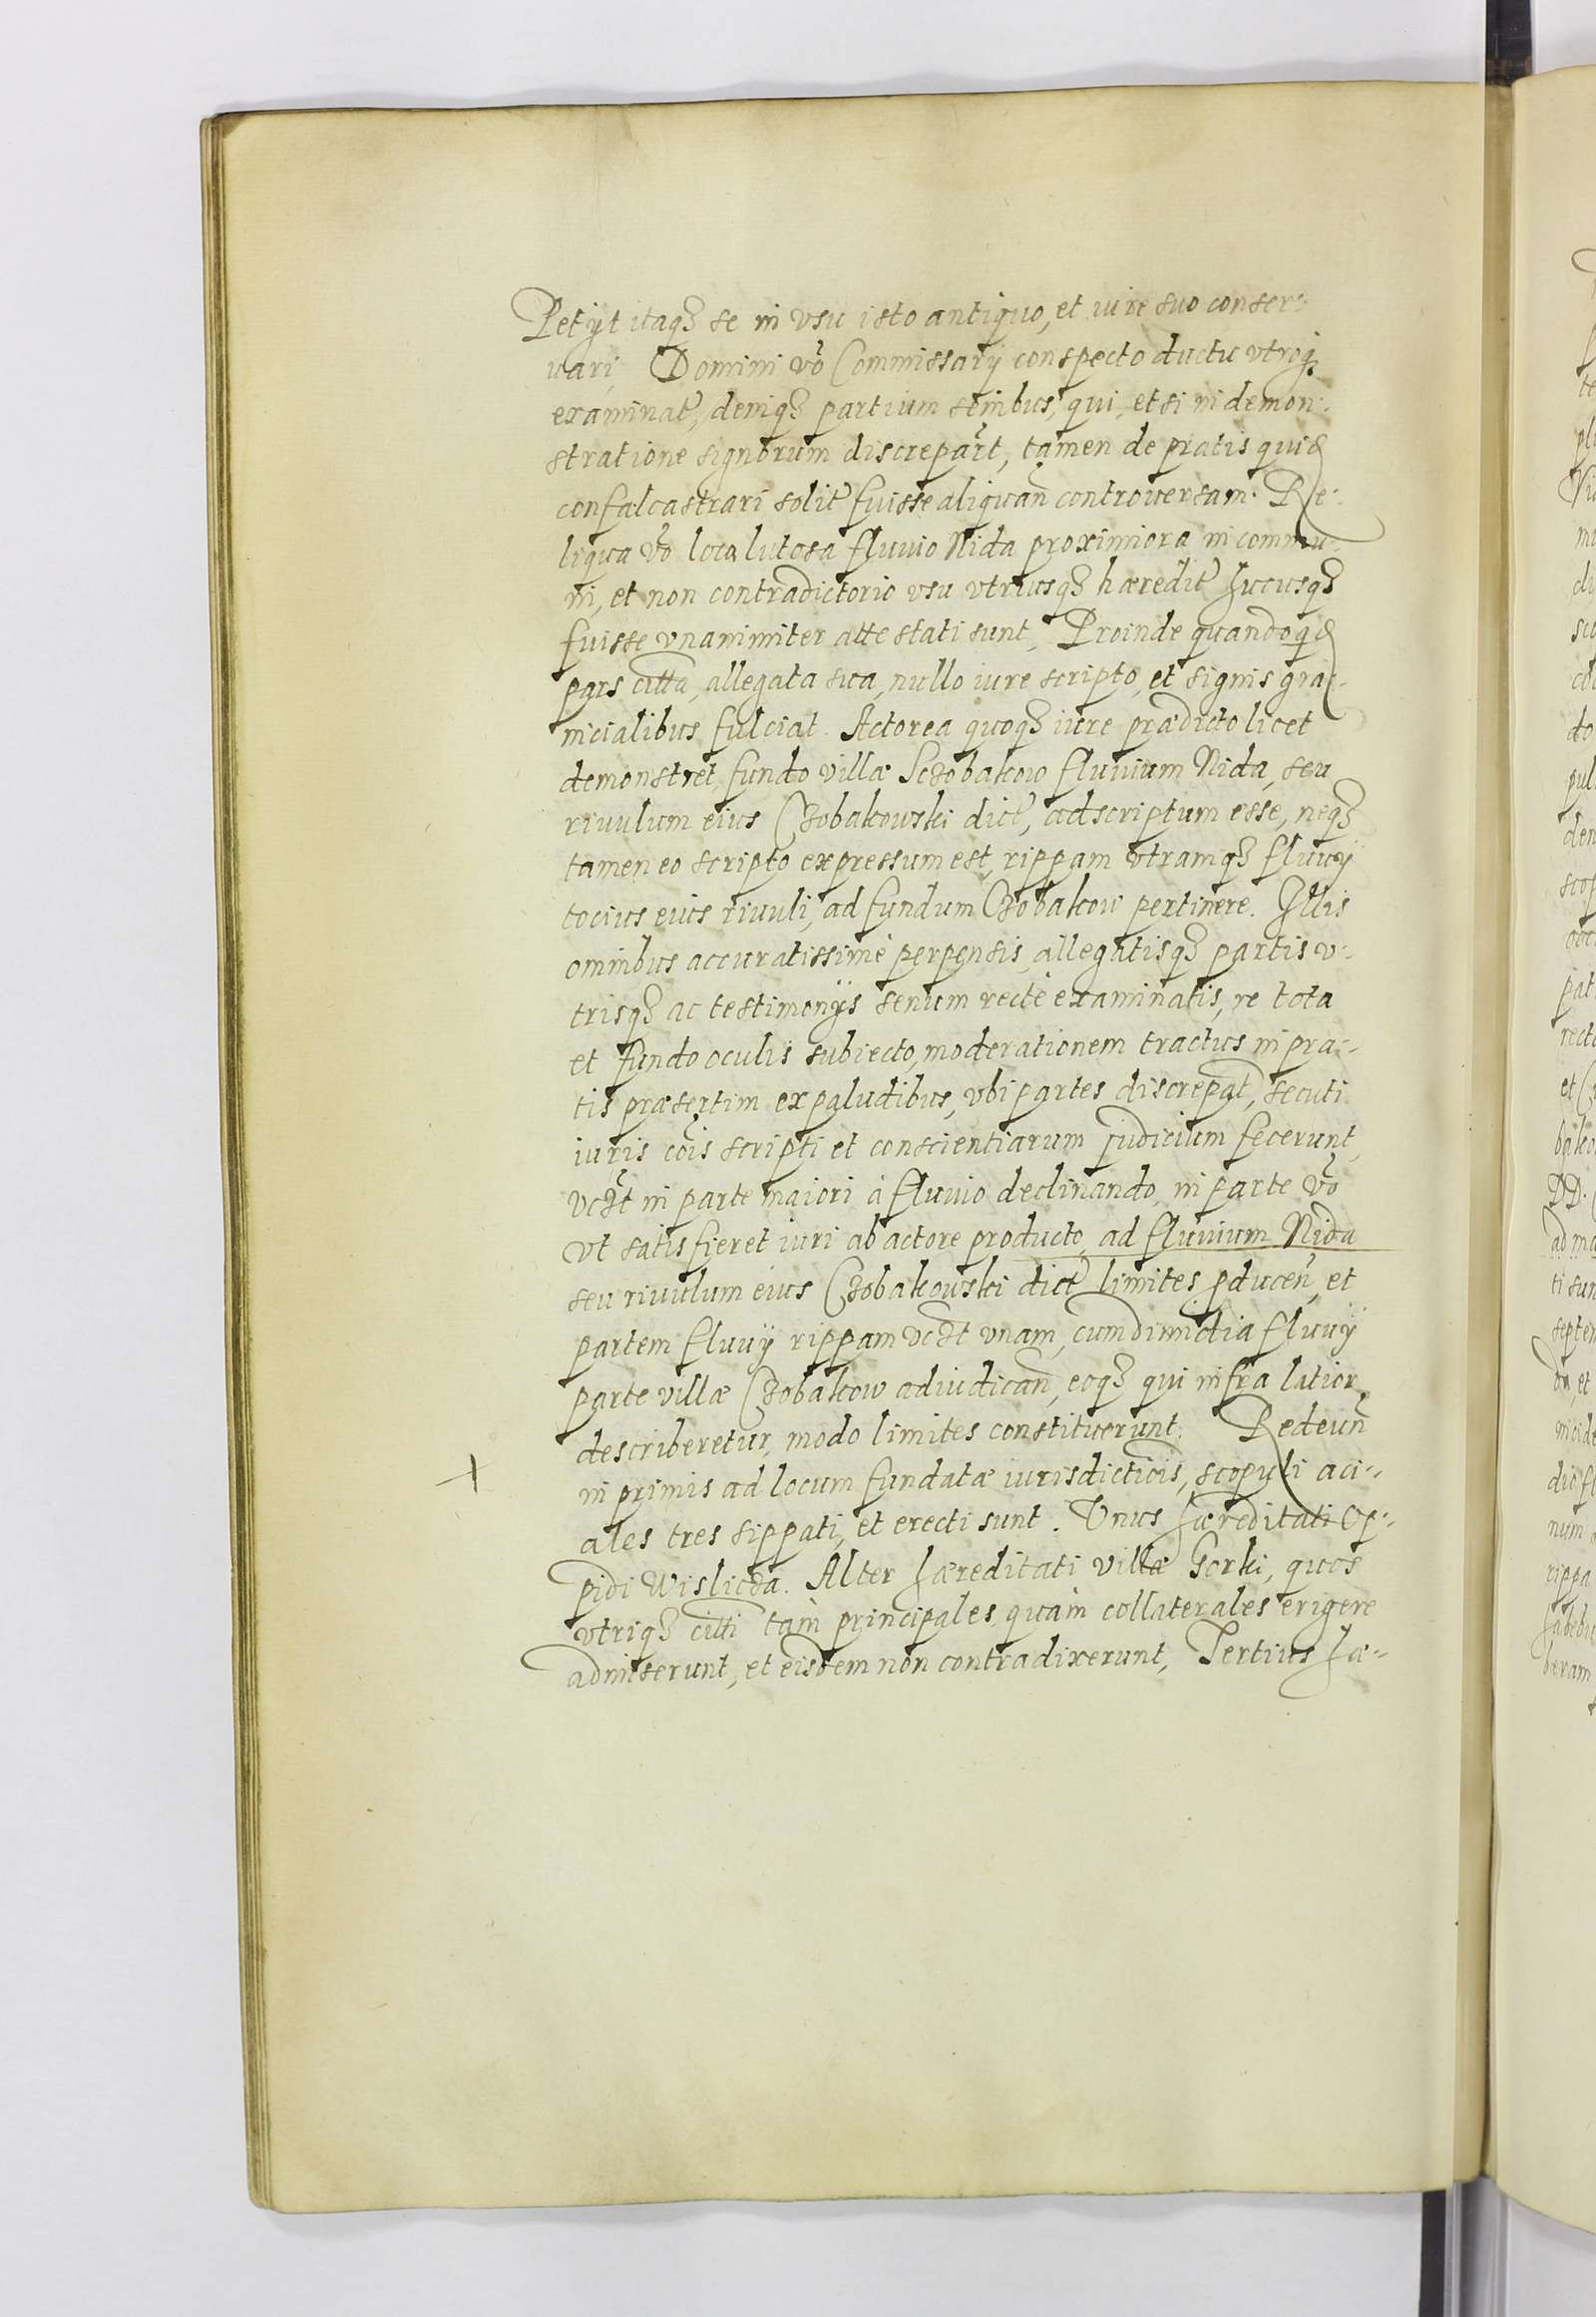 Petijt itaq₃ se in vsu isto antiquo, et iure suo conser-
uari. Domini vo Commissarij conspecto ductu vtroq₃
examinat, deniq₃ partium senibus, qui, etsi in demon-
stratione signorum discrepart, tamen de pratis quid
confalcastrari solit fuisse aliquan controuersam. Re-
liqua vo loca lutosa fluuio Nida proximiora in commu-
ni, et non contradictorio vsu vtriusq₃ hæredit hucusq₃
fuisse vnanimiter attestati sunt, Proinde quandoqd
pars citta, allegata sua, nullo iure scripto, et signis gra-
nicialibus fulciat. Actorea quoq₃ iure prædicto licet
demonstret, fundo villæ Sczobakow fluuium Nida, seu
riuulum eius Czobakowski dict, adscriptum esse, neq₃
tamen eo scripto expressum est, rippam vtramq₃ fluuij
tocius eius riuuli, ad fundum Czobakow pertinere. Illis
omnibus accuratissimè perpensis, allegatisq₃ partis v-
trisq₃ ac testimonijs senum rectè examinatis, re tota
et fundo oculis subiecto, moderationem tractus in pra-
tis præsertim ex paludibus, vbi partes discrepat, secuti
iuris cois scripti et conscientiarum judicium fecerunt,
vczt in parte maiori à fluuio declinando, in parte vo
vt satisfieret iuri ab actore producto, ad fluuium Nida
seu riuulum eius Czobakowski dict limites pducen, et
partem fluuij rippam vczt vnam, cum dimidia fluuij
parte villæ Czobakow adiudican, eoq₃ qui infra latior
describeretur, modo limites constituerunt. Redeun
in primis ad locum fundatæ iurisdictiois, scopuli aci-
ales tres sippati, et erecti sunt. Vnus hæreditati Op-
pidi Wislicza. Alter hæreditati villæ Gorki, quos
vtriq₃ citti tam principales quàm collaterales erigere
admiserunt, et eisdem non contradixerunt, Tertius hæ-
+